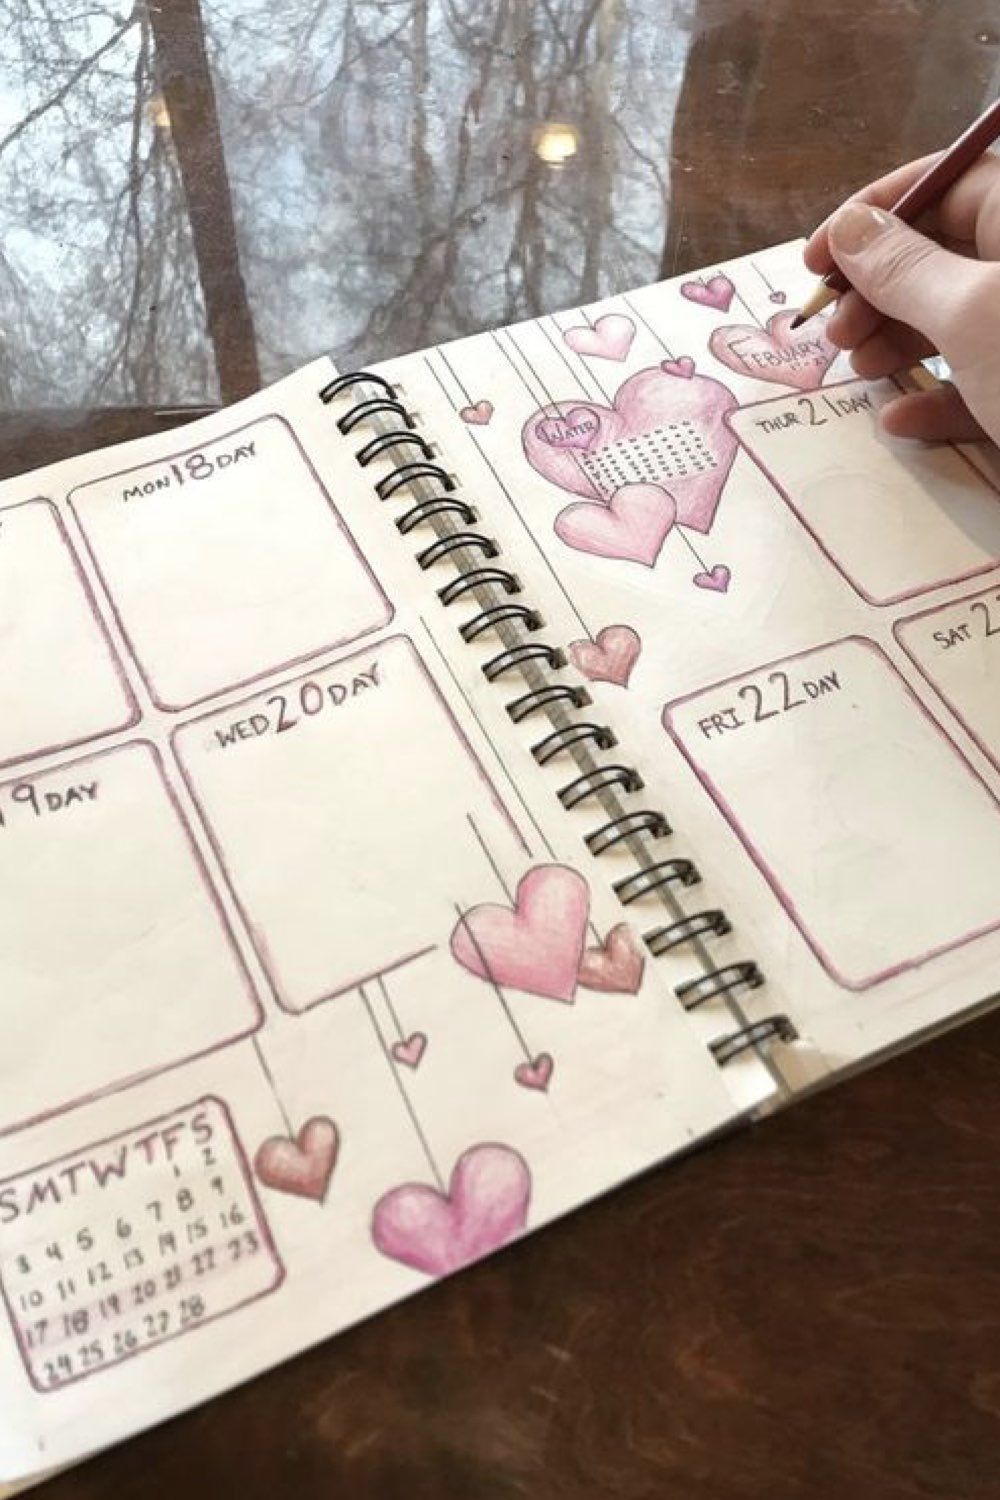 MON 18 DAY
WED 20 DAY
19 DAY
S M T W T F S
1 2
3 4 5 6 7 8 9
10 11 12 13 14 15 16
17 18 19 20 21 22 23
24 25 26 27 28
WATER
FEBUARY
THUR 21 DAY
FRI 22 DAY
SAT 2